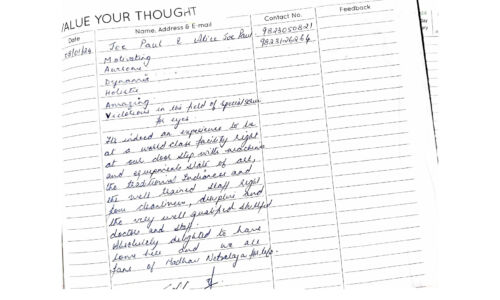 VALUE YOUR THOUGHT
Date
Name, Address & E-mail
Contact No.
Feedback
Joe Paul & Alice Joe Paul
Motivating
Awesome
Dynamic
Holistic
Amazing
in the field of
for eyes
Its indeed an experience to be
at a world class facility right
at our door step with machines
and equipments state of art,
the traditional Indianess and
the well trained staff right
from cleanliness, discipline and
the very well qualified skillful
doctors and staff
Absolutely delighted to have
come here and we are
fans of Madhav Netralaya for life.